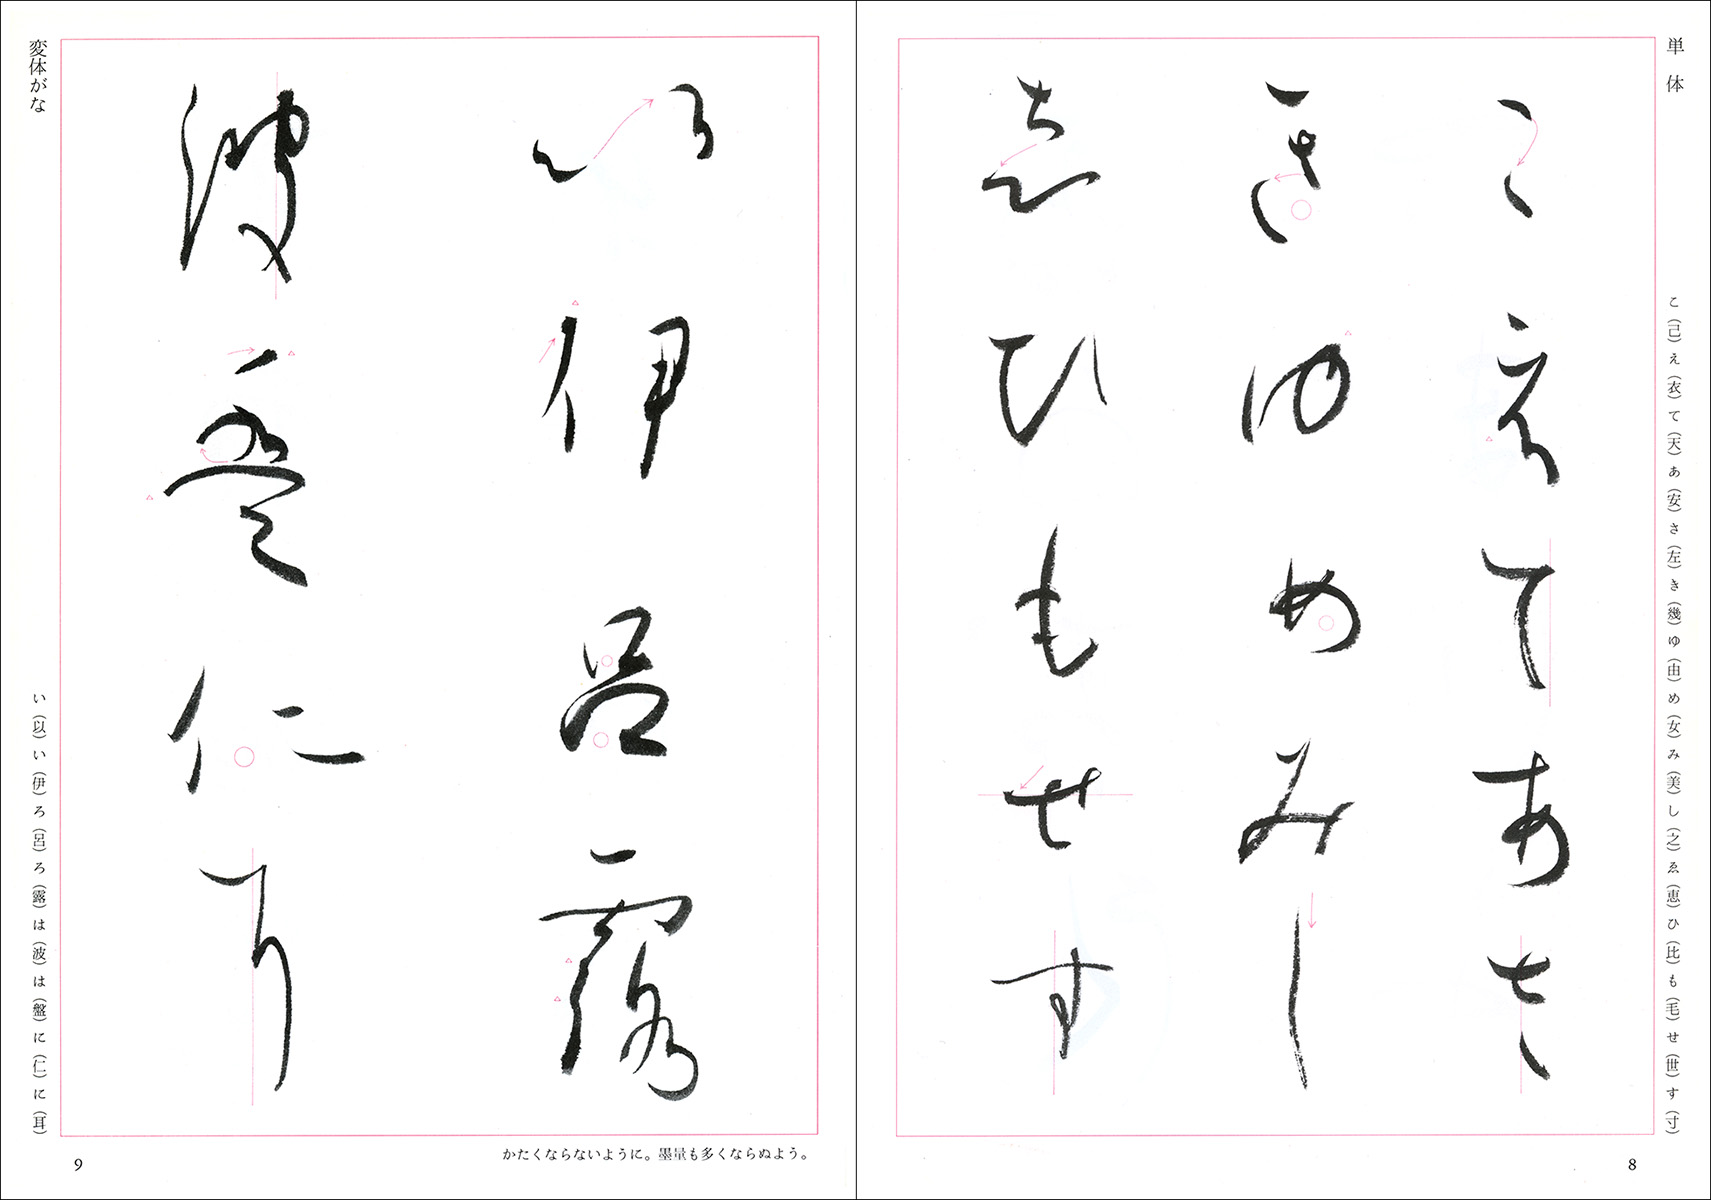 単体
こえてあさ
きゆめみし
ゑひもせす
こ(己)え(衣)て(天)あ(安)さ(左)き(幾)ゆ(由)め(女)み(美)し(之)ゑ(恵)ひ(比)も(毛)せ(世)す(寸)
8
変体がな
以伊呂露
波盤仁耳
い(以)い(伊)ろ(呂)ろ(露)は(波)は(盤)に(仁)に(耳)
かたくならないように。墨量も多くならぬよう。
9